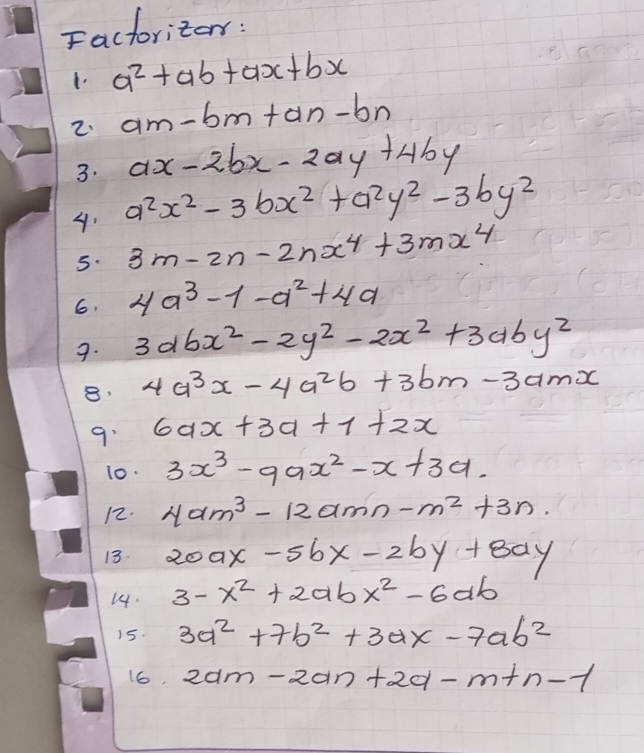 Factorizar:
1. a² + ab + ax + bx
2. am - bm + an - bn
3. ax - 2bx - 2ay + 4by
4. a²x² - 3bx² + a²y² - 3by²
5. 3m - 2n - 2nx⁴ + 3mx⁴
6. 4a³ - 1 - a² + 4a
7. 3abx² - 2y² - 2x² + 3aby²
8. 4a³x - 4a²b + 3bm - 3amx
9. 6ax + 3a + 1 + 2x
10. 3x³ - 9ax² - x + 3a.
12. 4am³ - 12amn - m² + 3n.
13. 20ax - 5bx - 2by + 8ay
14. 3 - x² + 2abx² - 6ab
15. 3a² + 7b² + 3ax - 7ab²
16. 2am - 2an + 2a - m + n - 1